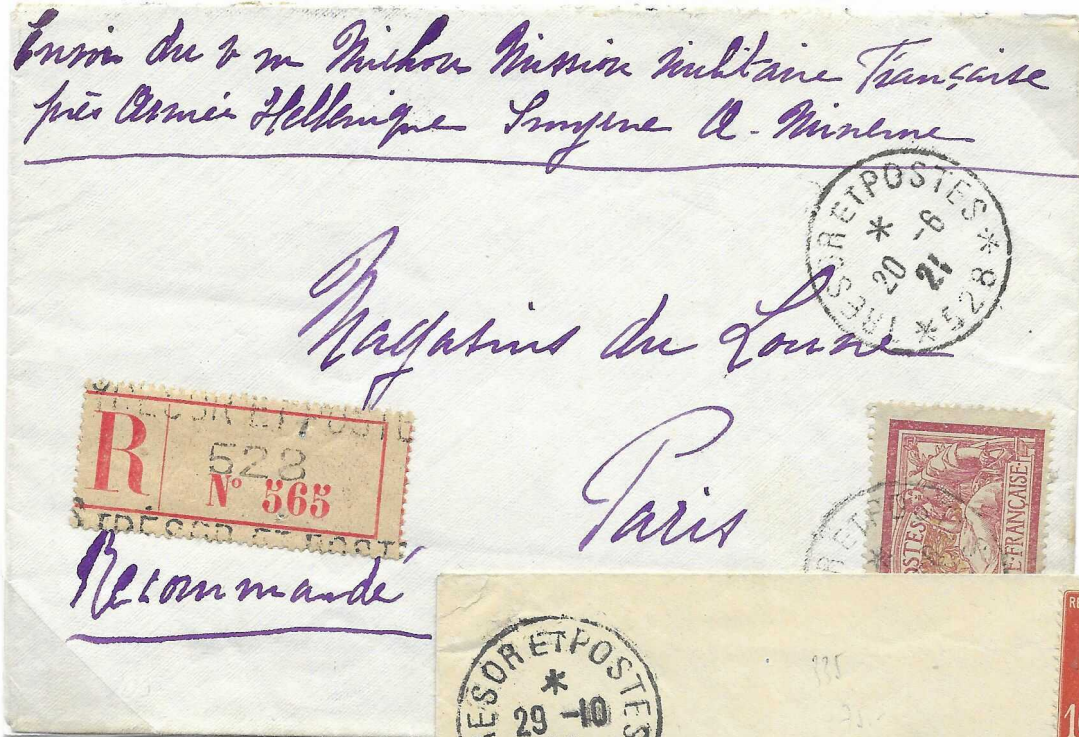 Envoi du v m Michon Mission militaire Française
près Armée Hellénique Smyrne A. Mineure
TRESOR ET POSTES * 528 *
*
20 -6
21
Magasins du Louvre
Paris
TRESOR ET POSTE
R
528
N° 565
TRÉSOR ET POST
Recommandé
POSTES
E FRANÇAISE
R ET PO
RESOR ET POSTES
*
29 -10
335
RE
1